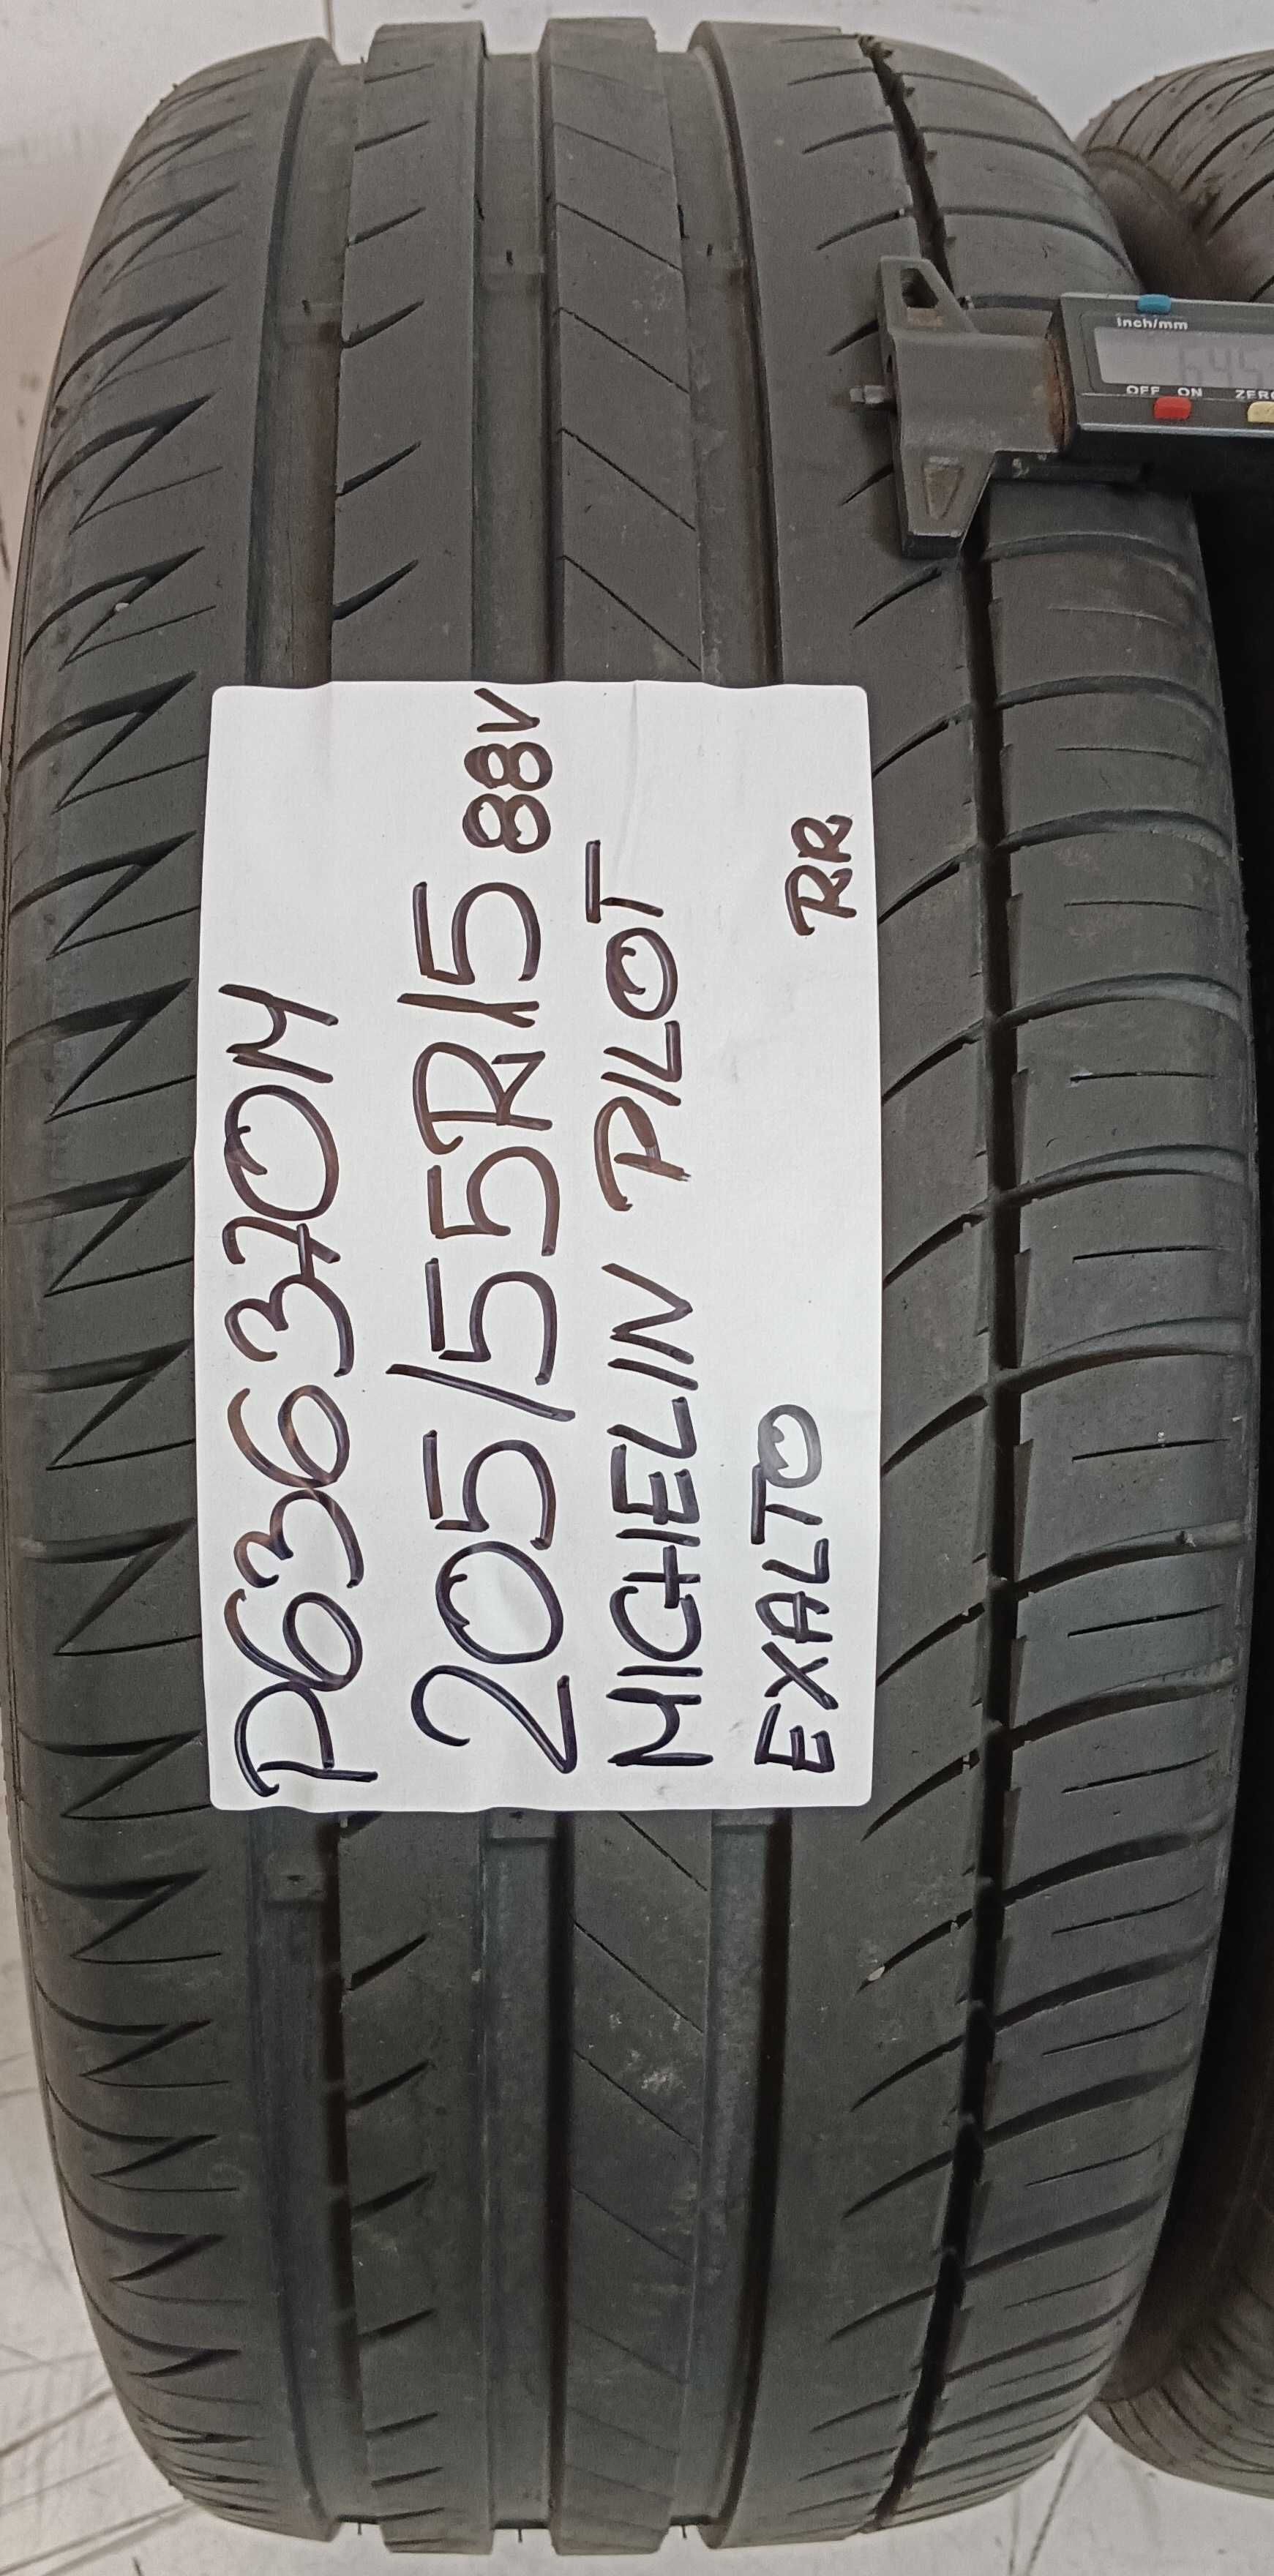 P636370M
205/55R15 88V
MICHELIN PILOT
EXALTO RR
Inch/mm
OFF ON ZERO